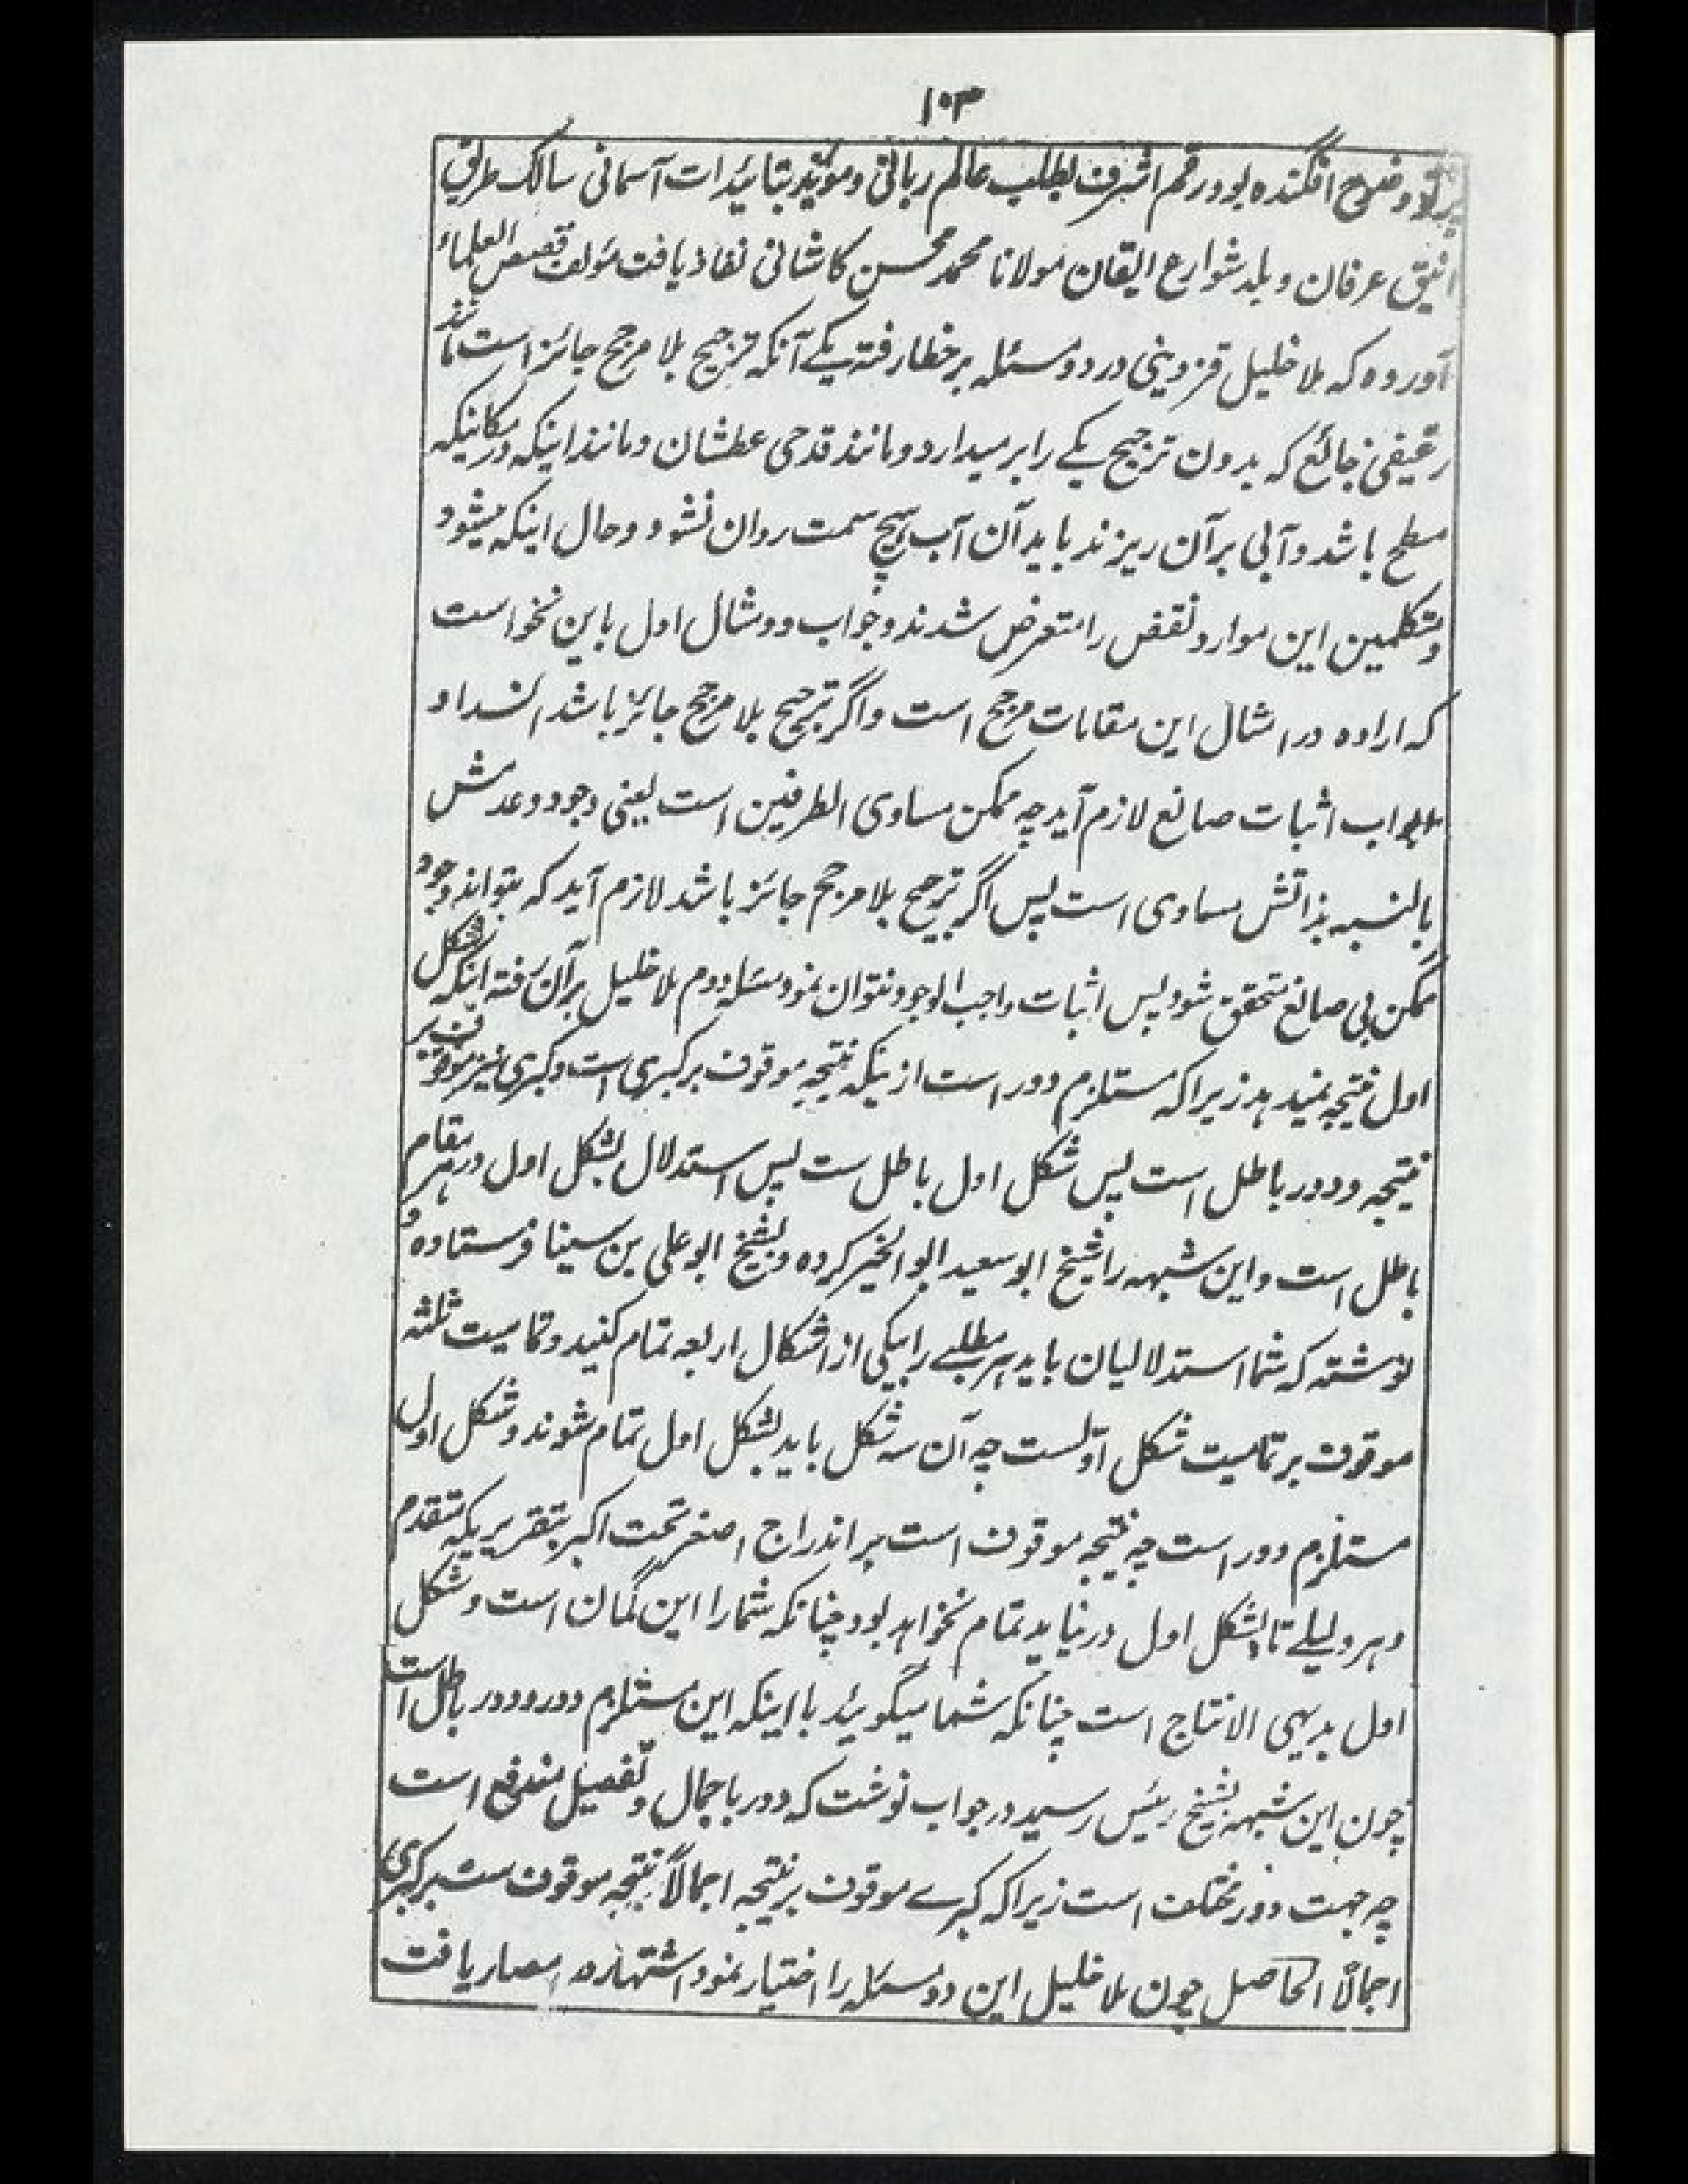 ۱۰۳
پرتو وضوح افکنده بود و رقم اشرف بطلب عالم ربانی و مؤید بتائیدات آسمانی سالک طریق
انیق عرفان و بلد شوارع ایقان مولانا محمد محسن کاشانی نفاذ یافت مؤلف قصص العلماء
آورده که ملا خلیل قزوینی در دو مسئله بر خطا رفته یکے آنکه ترجیح بلا مرجح جائز است مانند
رغیفی جائع که بدون ترجیح یکے را بر میدارد و مانند قدحی عطشان و مانند اینکه در مکانیکه
مسطح باشد و آبی بر آن ریزند باید آن آب بهیچ سمت روان نشود و حال اینکه میشود
و متکلمین این موارد نقض را متعرض شدند و جواب دو مثال اول باین نحو است
که اراده در امثال این مقامات مرجح است و اگر ترجیح بلا مرجح جائز باشد انسداد
ابواب اثبات صانع لازم آید چه ممکن مساوی الطرفین است یعنی وجود و عدمش
بالنسبه بذاتش مساوی است پس اگر ترجیح بلا مرجح جائز باشد لازم آید که بتواند وجود
ممکن بی صانع متحقق شود پس اثبات واجب الوجود نتوان نمود مسئله دوم ملا خلیل بر آن رفته اینکه شکل
اول نتیجه نمیدهد زیرا که مستلزم دور است از ینکه نتیجه موقوف بر کبری است و کبری نیز موقوف بر
نتیجه و دور باطل است پس شکل اول باطل ست پس استدلال بشکل اول در هر مقام
باطل است و این شبهه را شیخ ابو سعید ابو الخیر کرده و بشیخ ابو علی بن سینا فرستاده و
نوشته که شما استدلالیان باید هر مطلبے را بیکی از اشکال اربعه تمام کنید و تمامیت ثلثه
موقوف بر تمامیت شکل اوّلست چه آن سه شکل باید بشکل اول تمام شوند و شکل اول
مستلزم دور است چه نتیجه موقوف است بر اندراج اصغر تحت اکبر بتقریریکه متقدم
و هر دلیلے تا بشکل اول در نیاید تمام نخواهد بود چنانکه شما را این گمان است و شکل
اول بدیهی الانتاج است چنانکه شما میگوئید با اینکه این مستلزم دور و دور باطل است
چون این شبهه بشیخ رئیس رسید در جواب نوشت که دور باجمال و تفصیل مندفع است
چه جهت دور مختلف است زیرا که کبرے موقوف بر نتیجه اجمالاً نتیجه موقوف ست بر کبری
اجمالاً الحاصل چون ملا خلیل این دو مسئله را اختیار نمود اشتهاره امصار یافت